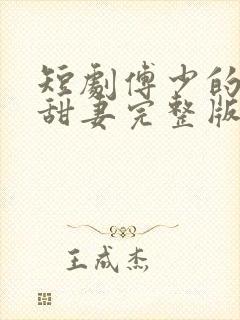 短劇傅少的
甜妻完整版
王成杰